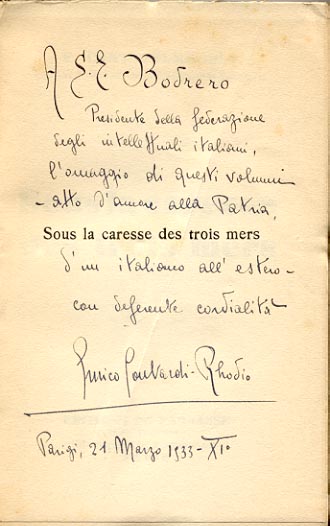 A S. E. Bodrero
Presidente della federazione
degli intellettuali italiani,
l'omaggio di questi volumi
- atto d'amore alla Patria,
Sous la caresse des trois mers
d'un italiano all'estero -
con deferente cordialità
Enrico Rhodio
Parigi, 21 Marzo 1933 - XIº